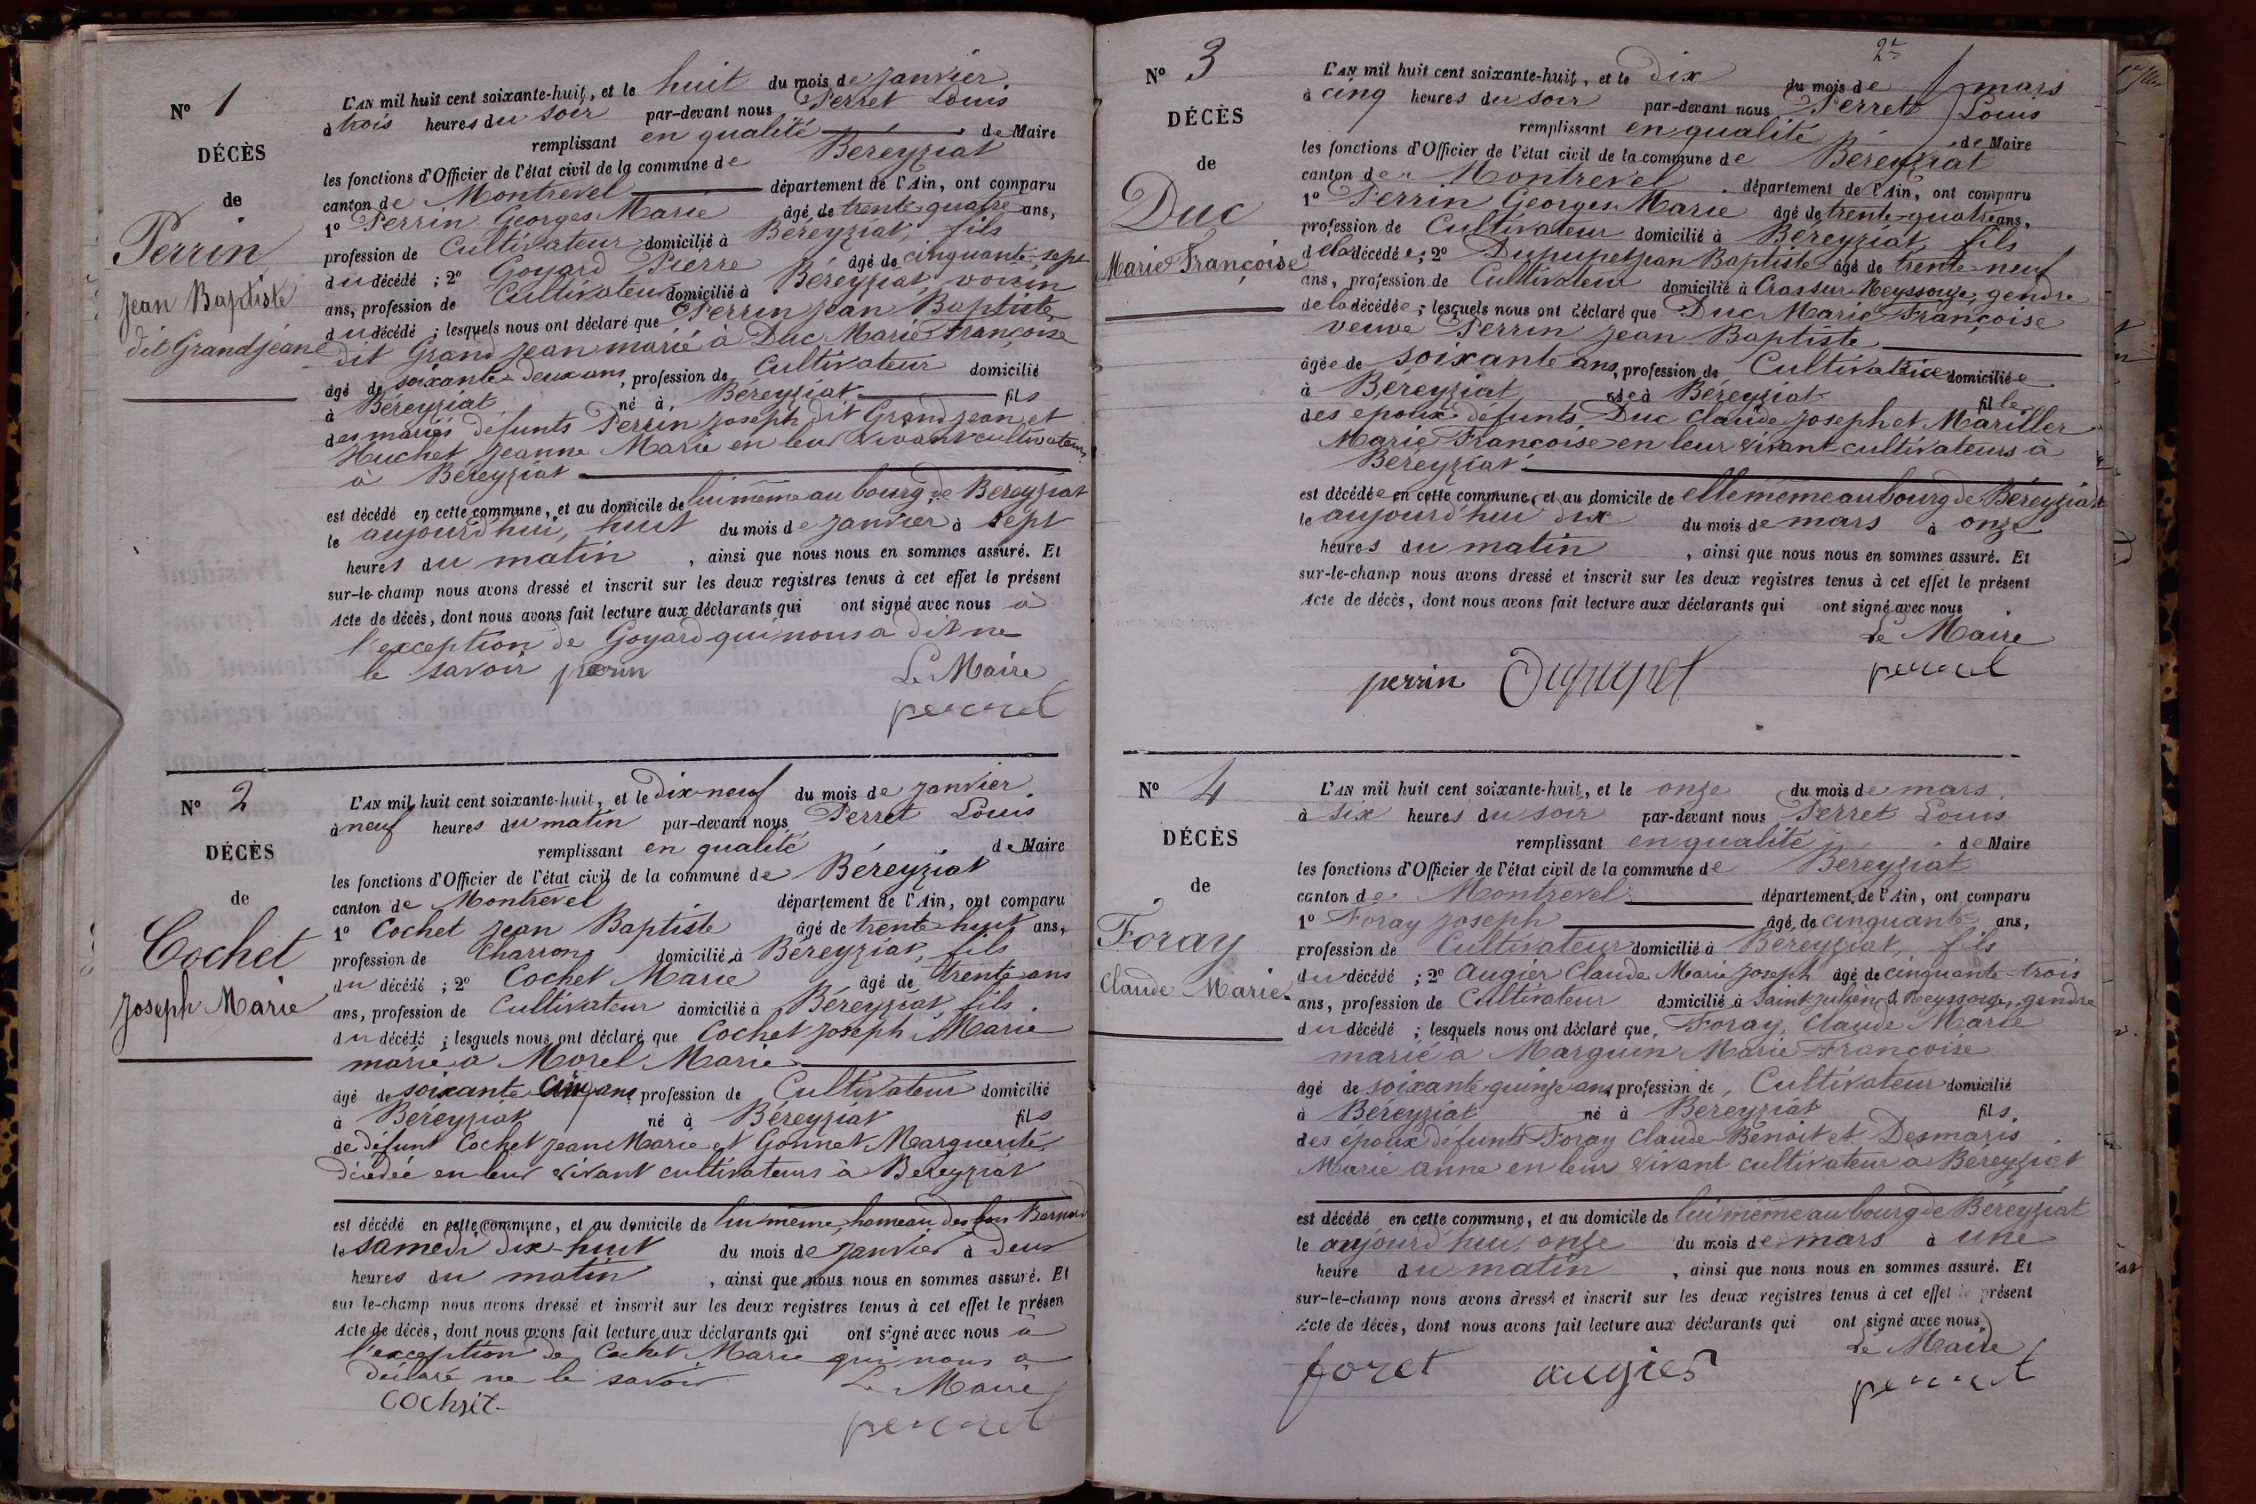 N° 1
DÉCÈS
de
Perrin
Jean Baptiste
dit Grandjean
L'AN mil huit cent soixante-huit, et le huit du mois de janvier
à trois heures du soir par-devant nous Perret Louis
remplissant en qualité de Maire
les fonctions d'Officier de l'état civil de la commune de Béreyziat
canton de Montrevel département de l'Ain, ont comparu
1° Perrin Georges Marie âgé de trente quatre ans,
profession de Cultivateur domicilié à Béreyziat, fils
du décédé ; 2° Goyard Pierre âgé de cinquante-sept
ans, profession de Cultivateur domicilié à Béreyziat, voisin
du décédé ; lesquels nous ont déclaré que Perrin Jean Baptiste
dit Grand jean marié à Duc Marie Françoise
âgé de soixante-deux ans, profession de Cultivateur domicilié
à Béreyziat né à Béreyziat fils
des mariés défunts Perrin Joseph dit Grand jean et
Huchet Jeanne Marie en leur vivant cultivateurs
à Béreyziat
est décédé en cette commune, et au domicile de lui même au bourg de Béreyziat
le aujourd'hui, huit du mois de janvier à sept
heures du matin, ainsi que nous nous en sommes assuré. Et
sur-le-champ nous avons dressé et inscrit sur les deux registres tenus à cet effet le présent
Acte de décès, dont nous avons fait lecture aux déclarants qui ont signé avec nous à
l'exception de Goyard qui nous a dit ne
le savoir perrin Le Maire
perret
N° 2
DÉCÈS
de
Cochet
Joseph Marie
L'AN mil huit cent soixante-huit, et le dix-neuf du mois de janvier.
à neuf heures du matin par-devant nous Perret Louis
remplissant en qualité de Maire
les fonctions d'Officier de l'état civil de la commune de Béreyziat
canton de Montrevel département de l'Ain, ont comparu
1° Cochet Jean Baptiste âgé de trente-huit ans,
profession de Charron domicilié à Béreyziat, fils
du décédé ; 2° Cochet Marie âgé de trente ans
ans, profession de Cultivateur domicilié à Béreyziat, fils
du décédé ; lesquels nous ont déclaré que Cochet Joseph Marie
marié à Morel Marie
âgé de soixante cinq ans, profession de Cultivateur domicilié
à Béreyziat né à Béreyziat fils
de défunt Cochet Jean Marie et Gonnet Marguerite
décédée en leur vivant cultivateurs à Bereyziat
est décédé en cette commune, et au domicile de lui même, hameau des bois Bernard
le samedi dix-huit du mois de janvier à deux
heures du matin, ainsi que nous nous en sommes assuré. Et
sur le-champ nous avons dressé et inscrit sur les deux registres tenus à cet effet le présen
Acte de décès, dont nous avons fait lecture aux déclarants qui ont signé avec nous à
l'exception de Cochet Marie qui nous a
déclaré ne le savoir Le Maire
cochet
perret
2e
N° 3
DÉCÈS
de
Duc
Marie Françoise
L'AN mil huit cent soixante-huit, et le dix du mois de mars
à cinq heures du soir par-devant nous Perret Louis
remplissant en qualité de Maire
les fonctions d'Officier de l'état civil de la commune de Béreyziat
canton de Montrevel département de l'Ain, ont comparu
1° Perrin Georges Marie âgé de trente-quatre ans,
profession de Cultivateur domicilié à Béreyziat, fils
de la décédée ; 2° Dupupet Jean Baptiste âgé de trente-neuf
ans, profession de Cultivateur domicilié à Cras sur Reyssouze, gendre
de la décédée ; lesquels nous ont déclaré que Duc Marie Françoise
veuve Perrin Jean Baptiste
âgée de soixante ans, profession de Cultivatrice domiciliée
à Béreyziat née à Béreyziat fille
des époux défunts Duc Claude Joseph et Mariller
Marie Françoise en leur vivant cultivateurs à
Béréyziat
est décédée en cette commune, et au domicile de elle même au bourg de Béreyziat
le aujourd'hui dix du mois de mars à onze
heures du matin, ainsi que nous nous en sommes assuré. Et
sur-le-champ nous avons dressé et inscrit sur les deux registres tenus à cet effet le présent
Acte de décès, dont nous avons fait lecture aux déclarants qui ont signé avec nous
Le Maire
perrin Dupupet perret
N° 4
DÉCÈS
de
Foray
Claude Marie
L'AN mil huit cent soixante-huit, et le onze du mois de mars.
à six heures du soir par-devant nous Perret Louis
remplissant en qualité de Maire
les fonctions d'Officier de l'état civil de la commune de Béreyziat
canton de Montrevel département de l'Ain, ont comparu
1° Foray Joseph âgé de cinquante ans,
profession de Cultivateur domicilié à Béreyziat, fils
du décédé ; 2° Augier Claude Marie Joseph âgé de cinquante-trois
ans, profession de Cultivateur domicilié à Saint Julien s Reyssouze, gendre
du décédé ; lesquels nous ont déclaré que Foray Claude Marie
marié à Marguin Marie Françoise
âgé de soixante-quinze ans, profession de Cultivateur domicilié
à Béreyziat né à Béreyziat fils
des époux défunts Foray Claude Benoit et Desmaris
Marie Anne en leur vivant cultivateur à Béreyziat
est décédé en cette commune, et au domicile de lui même au bourg de Béreyziat
le aujourd'hui onze du mois de mars à une
heure du matin, ainsi que nous nous en sommes assuré. Et
sur-le-champ nous avons dressé et inscrit sur les deux registres tenus à cet effet le présent
Acte de décès, dont nous avons fait lecture aux déclarants qui ont signé avec nous
Le Maire
foret augier perret